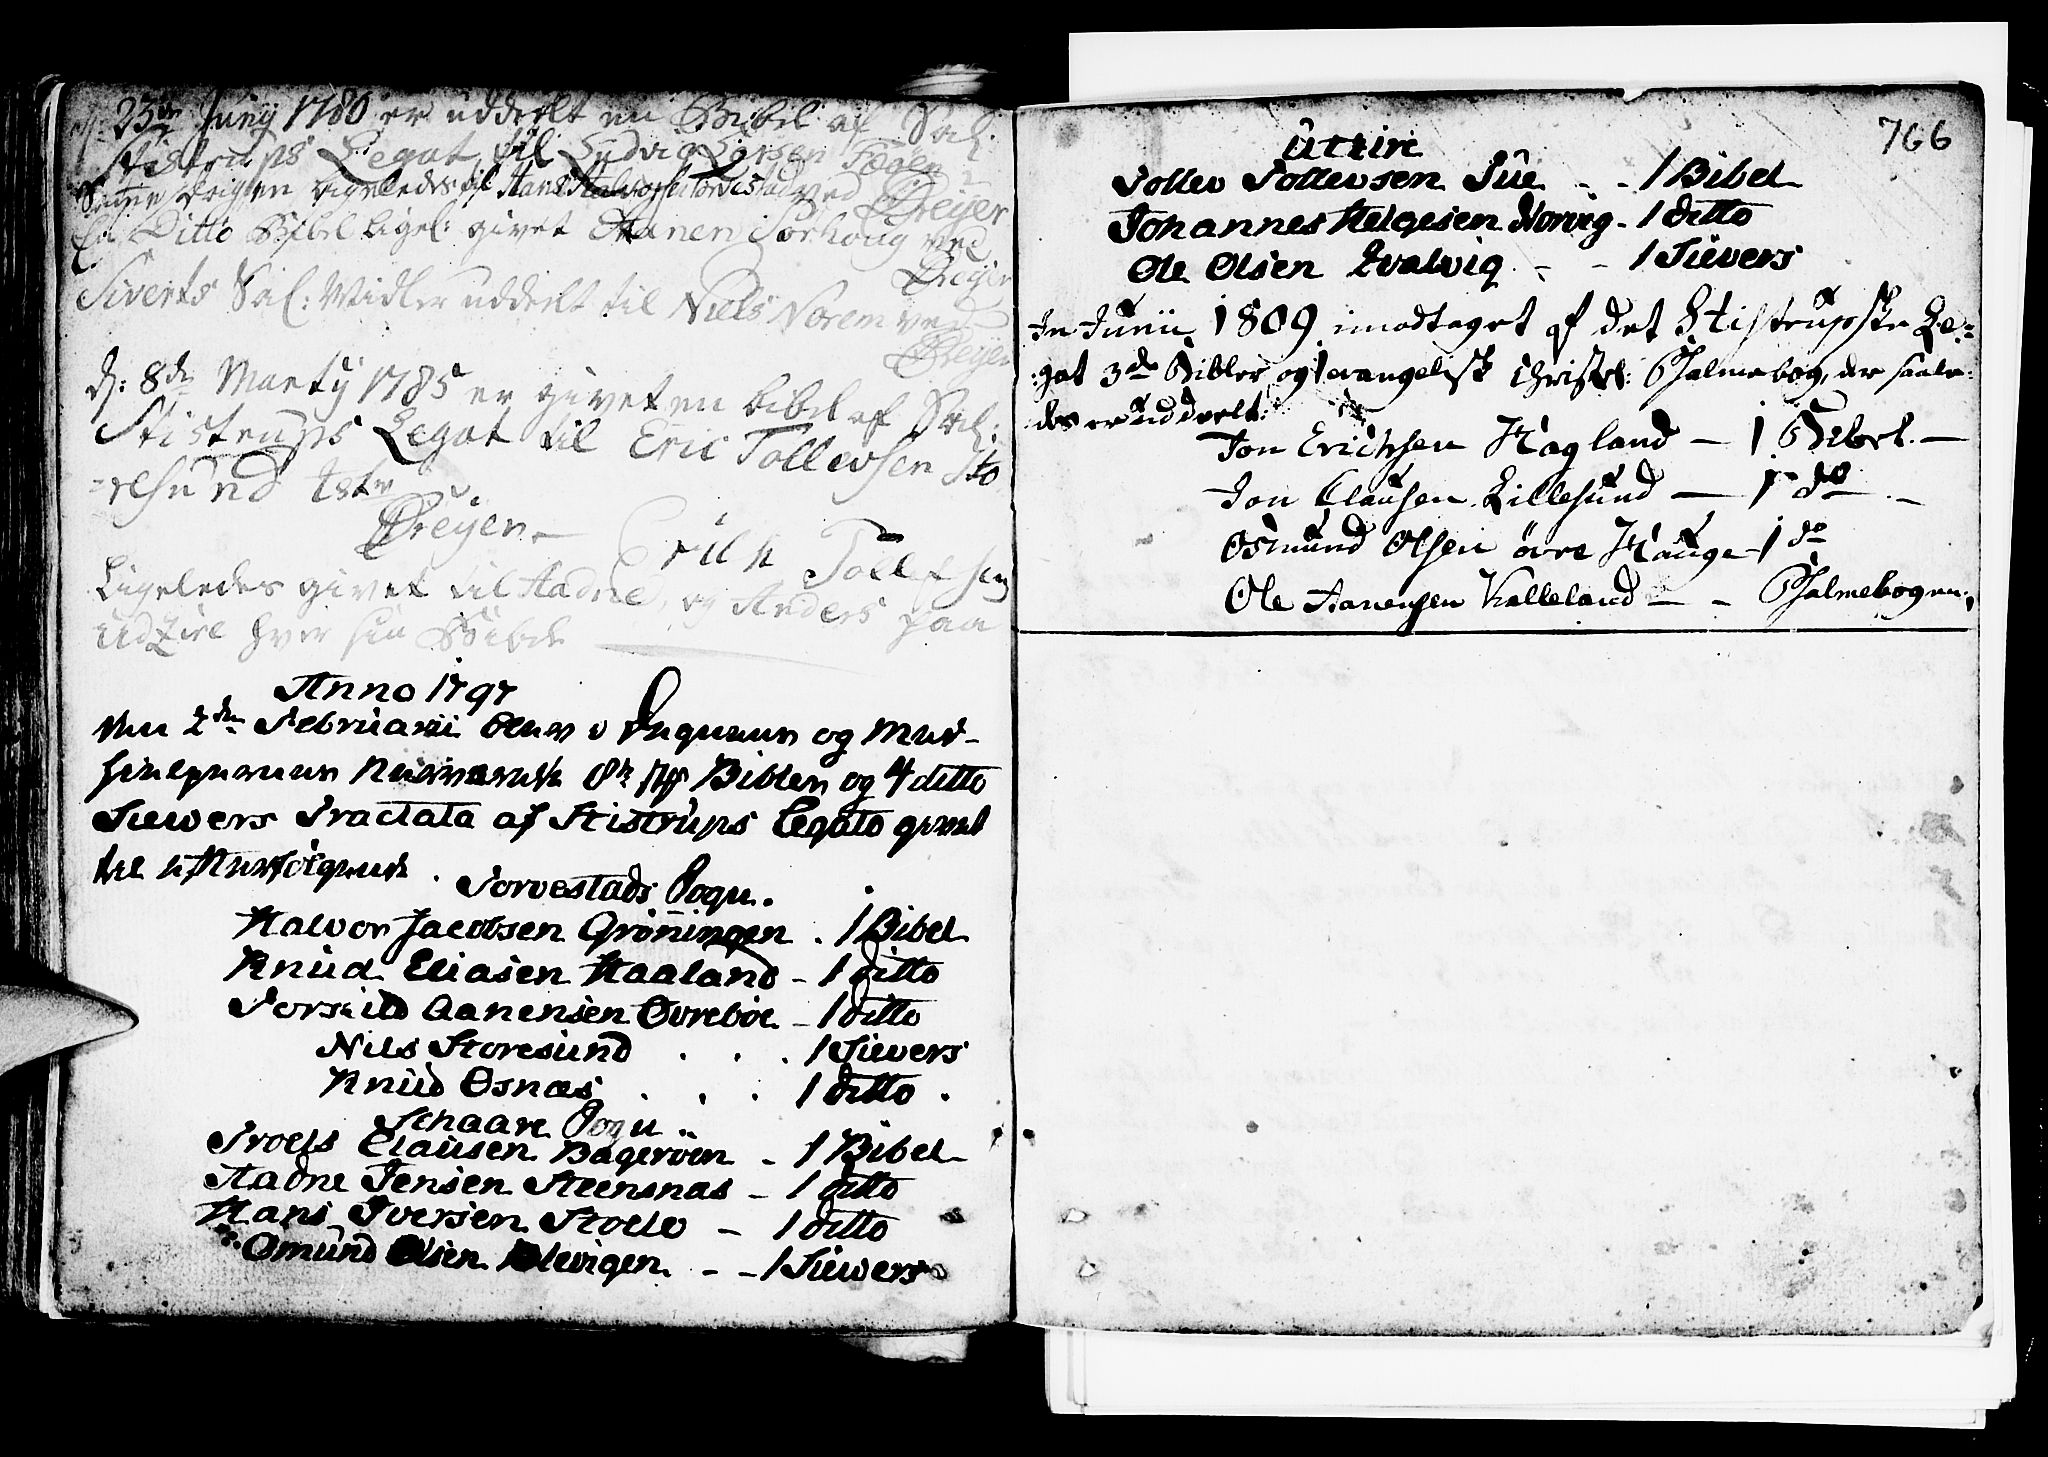 d: 23de Junij 1780 er uddeelt en Bibel af Sal:
Stistrups Legat til Ludvig Larsen
Samme ligeledes til Hans Halvorsen ved Dreyer
En Ditto Bibel ligel: givet Aanen Sørhoug ved
Dreyer
Siverts Sal: Midler uddeelt til Niels Norem ved
Dreyer
d: 8de Martij 1785 er givet en bibel af Sal:
Stistrups Legat til Eric Tollevsen Sto
=resund
Dreyer
Erich Tollefsen
Ligeledes givet til Aadne, og Anders paa
Udzire hver sin Bibel
Anno 1797
Den 2den Februarii blev i
og 4 ditto
Siewers Tractata af Stistrups Legato givet
til efterfølgende.
Torvestads Sogn.
Halvor Jacobsen Grönningen . 1 Bibel
Knud Eliasen Haaland - 1 ditto
Torkild Aanensen Øvreböe - 1 ditto
Nils Storesund . . . 1 Sievers
Knud Osnæs . . . 1 ditto .
Schaare Sogn ..
Troels Clausen Bagerøen - 1 Bibel
Aadne Jensen Steensnæs - 1 ditto
Hans Iversen Stoele - 1 ditto
Omund Olsen - - 1 Siewers
766
Utzire
Tollev Tollevsen Sue - - 1 Bibel
Johannes Helgesen Norvig - 1 ditto
Ole Olsen Qvalvig - - 1 Sievers
In Junii 1809 imodtaget af det Stistrupske Le=
:gat 3de Bibler og 1 evangelisk christel: Psalmebog, der saale=
des er uddeelt:
Jon Erichsen Hagland — 1 Bibel. —
Jon Clausen Lillesund — 1 do. —
Osmund Olsen övre Hauge - 1 do
Ole Aanensen Kalleland — - Psalmebogen.